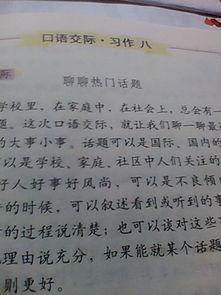 口语交际·习作八
际
聊聊热门话题
学校里，在家庭中，在社会上，总会有一
题。这次口语交际，就让我们聊一聊最近
的大事小事。话题可以是国际、国内的
可以是学校、家庭、社区中人们关注的
好人好事好风尚，可以是不良倾
件的时候，可以叙述看到或听到的事
的过程说清楚；也可以谈对这些事
理由说充分，如果能就某个话题
则更好。